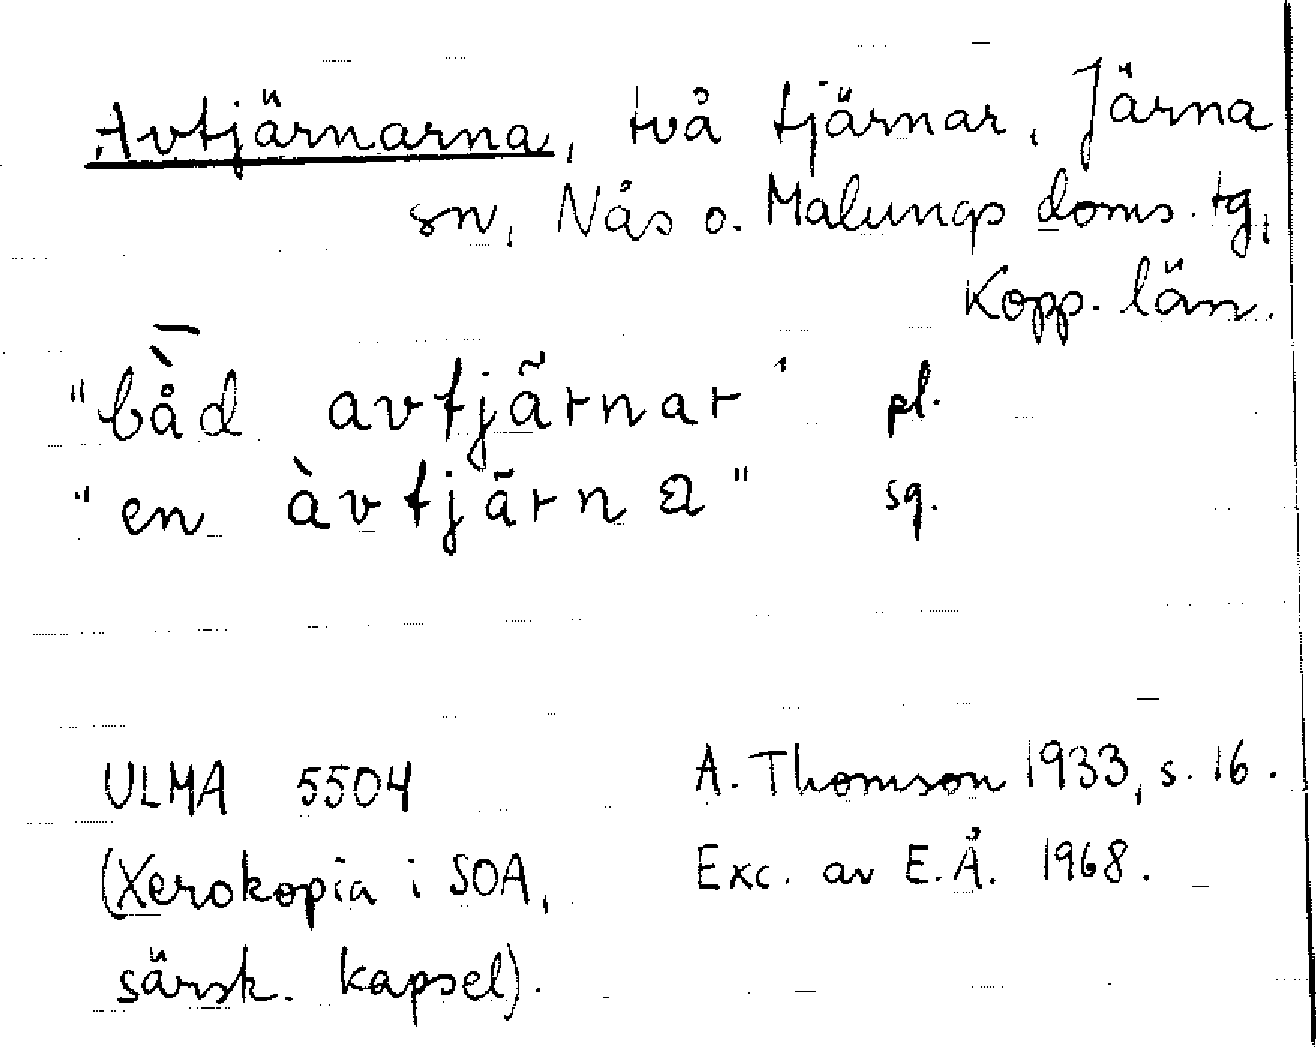 Avtjärnarna, två tjärnar, Järna
sn, Nås o. Malungs doms. tg,
Kopp. län.
"båd avtjärnar" pl.
"en àvtjärna" sg.
ULMA 5504 A. Thomson 1933, s. 16.
(Xerokopia i SOA, Exc. av E.Å. 1968.
särsk. kapsel).